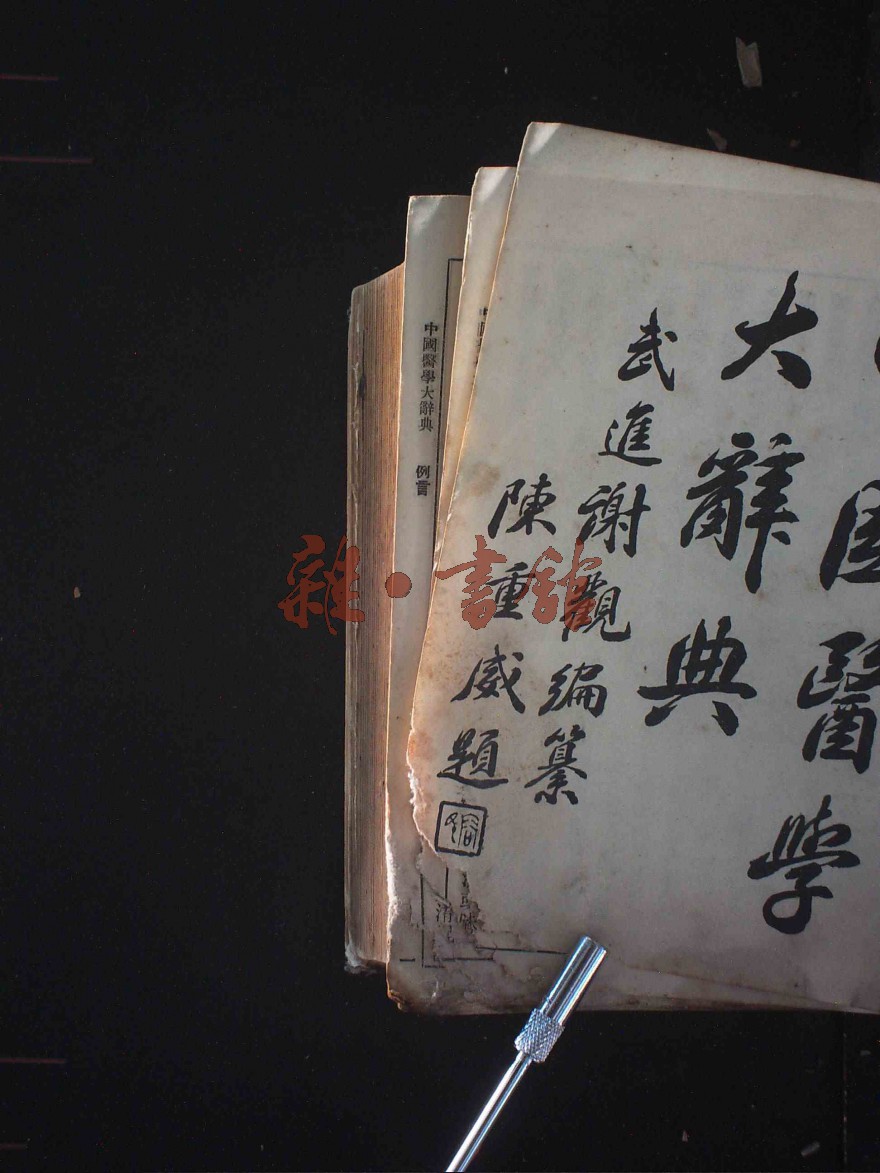 國醫學
大辭典
武進謝觀編纂
陳重威題
中國醫學大辭典 例言
雜·書館